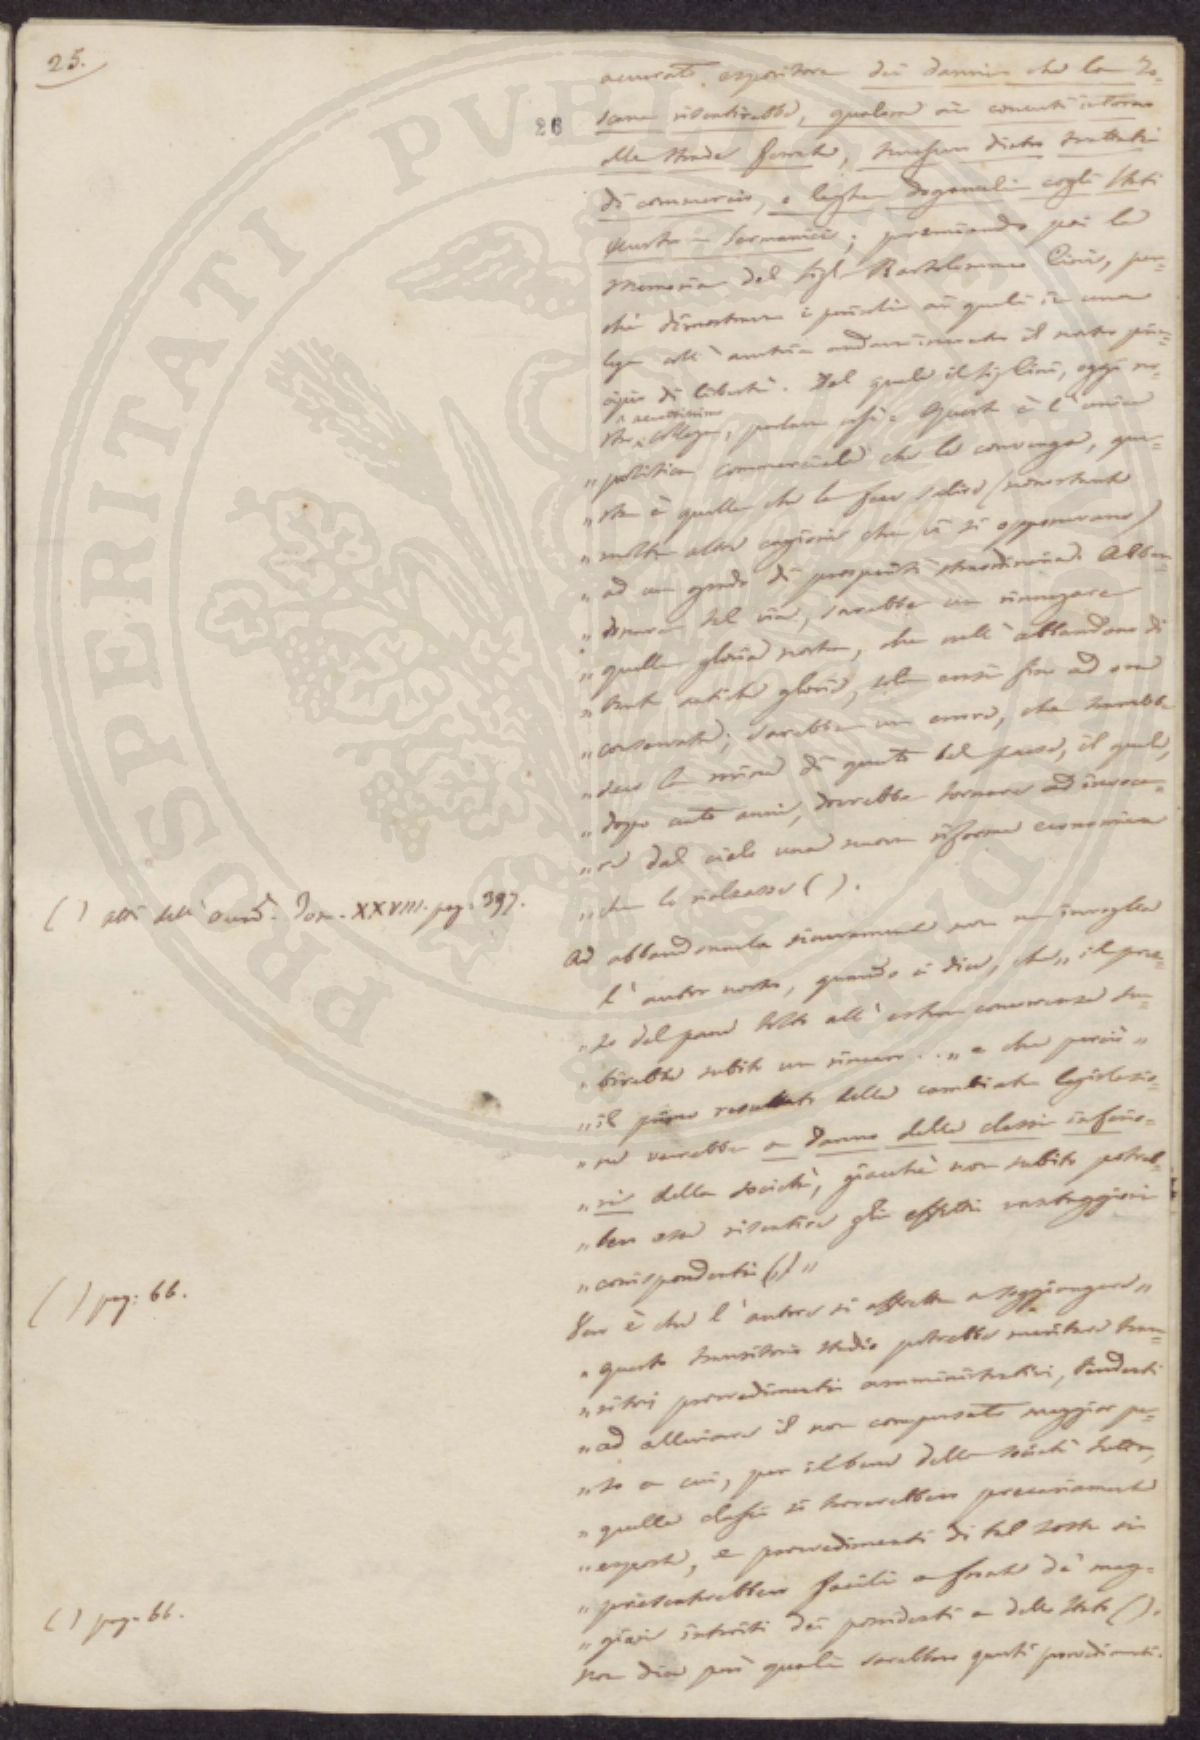 25.
26
accurato espositore dei danni che la To-
scana risentirebbe, qualora ai concerti intorno
alle strade ferrate, tenesser dietro trattati
di commercio, o leghe doganali cogli Stati
Austro-Germanici; premiando poi la
memoria del Sigr. Bartolommeo Cini, per-
chè dimostrava i pericoli ai quali in una
lega coll'Austria andava incontro il nostro prin-
cipio di libertà. Del quale il Sig. Cini, oggi no-
accettissimo
stro collega, parlava così: Questa è l'unica
„ politica commerciale che le convenga, que-
„ sta è quella che la fece salire (nonostante
„ molte altre cagioni che vi si opponevano)
„ ad un grado di prosperità straordinaria. Abban-
„ donare tal via, sarebbe un rinnegare
„ quella gloria nostra, che nell'abbandono di
„ tante antiche glorie, sola erasi fin ad ora
„ conservata; sarebbe un errore, che trarrebbe
„ seco la rovina di questo bel paese, il quale,
„ dopo cento anni, dovrebbe tornare ad invoca-
„ re dal cielo una nuova riforma economica
„ che lo rialzasse ( ).
( ) Atti dell'Accad. Tom. XXVIII. pag. 397.
Ad abbandonarla sicuramente non ne invoglia
l'autor nostro, quando ci dice, che „ il prez-
„ zo del pane tolto all'estera concorrenza su-
„ birebbe subito un rincaro... „ e che perciò „
„ il primo resultato della cambiata legislazio-
„ ne verrebbe a danno delle classi inferio-
„ ri della società, giacchè non subito potreb-
„ bero esse risentire gli effetti vantaggiosi
„ corrispondenti ( ) „
( ) pag: 66.
Ver è che l'autore si affretta a soggiungere „
„ questo transitorio stadio potrebbe meritare tran-
„ sitorj provvedimenti amministrativi, tendenti
„ ad alleviare il non compensato maggior pe-
„ so a cui, per il bene della società tutta,
„ quelle classi si troverebbero precariamente
„ esposte, e provvedimenti di tal sorta si
„ presenterebbero facili a fronte de' mag-
„ giori introiti dei possidenti e dello Stato ( ).
( ) pag. 66.
Non dice però quali sarebbero questi provvedimenti.